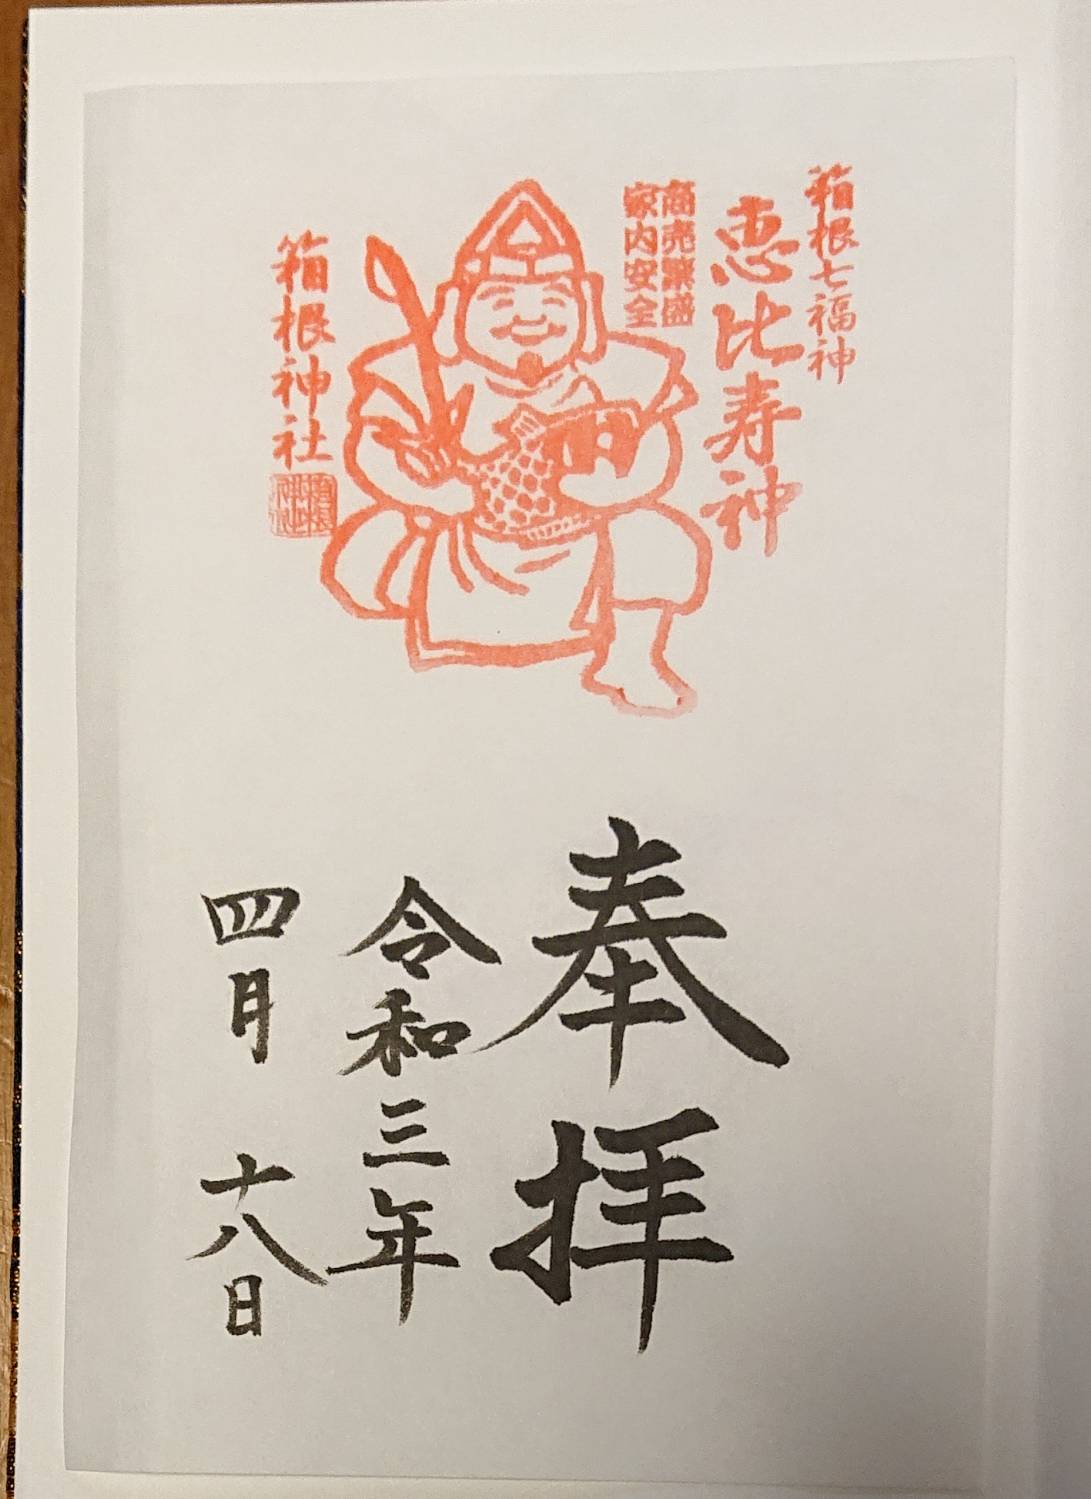 箱根七福神
恵比寿神
商売繁盛
家内安全
箱根神社
奉拝
令和三年
四月十八日